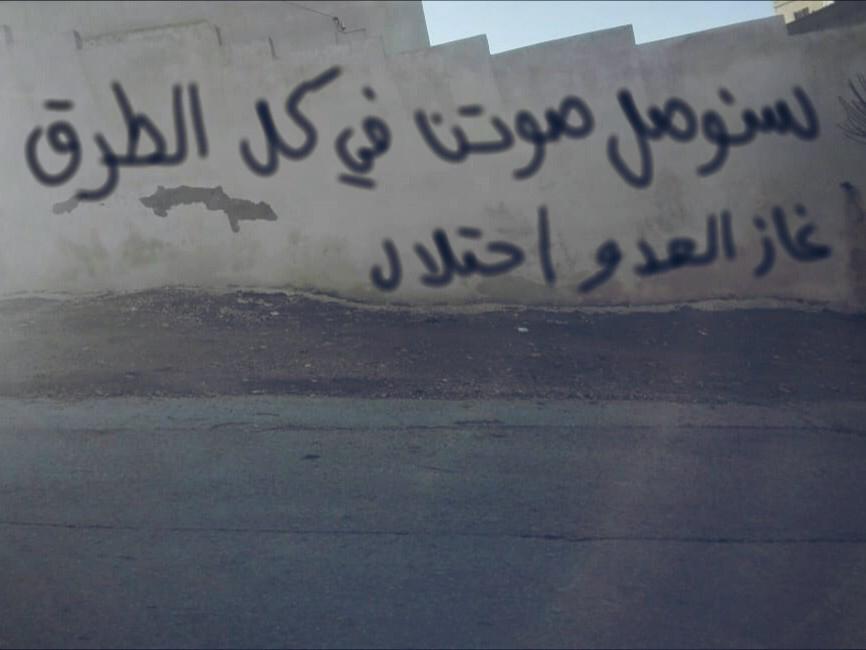 سنوصل صوتنا في كل الطرق
غاز العدو احتلال